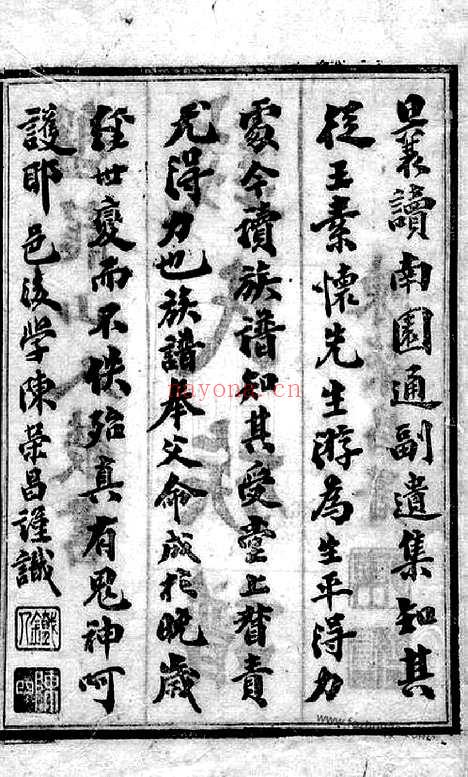 曩讀南園通副遺集知其
從王素懷先生游為生平得力
處今讀族譜知其受堂上督責
尤得力也族譜奉父命成於晚歲
經世變而不佚殆真有鬼神呵
護耶邑後学陳榮昌謹識
nayona.cn